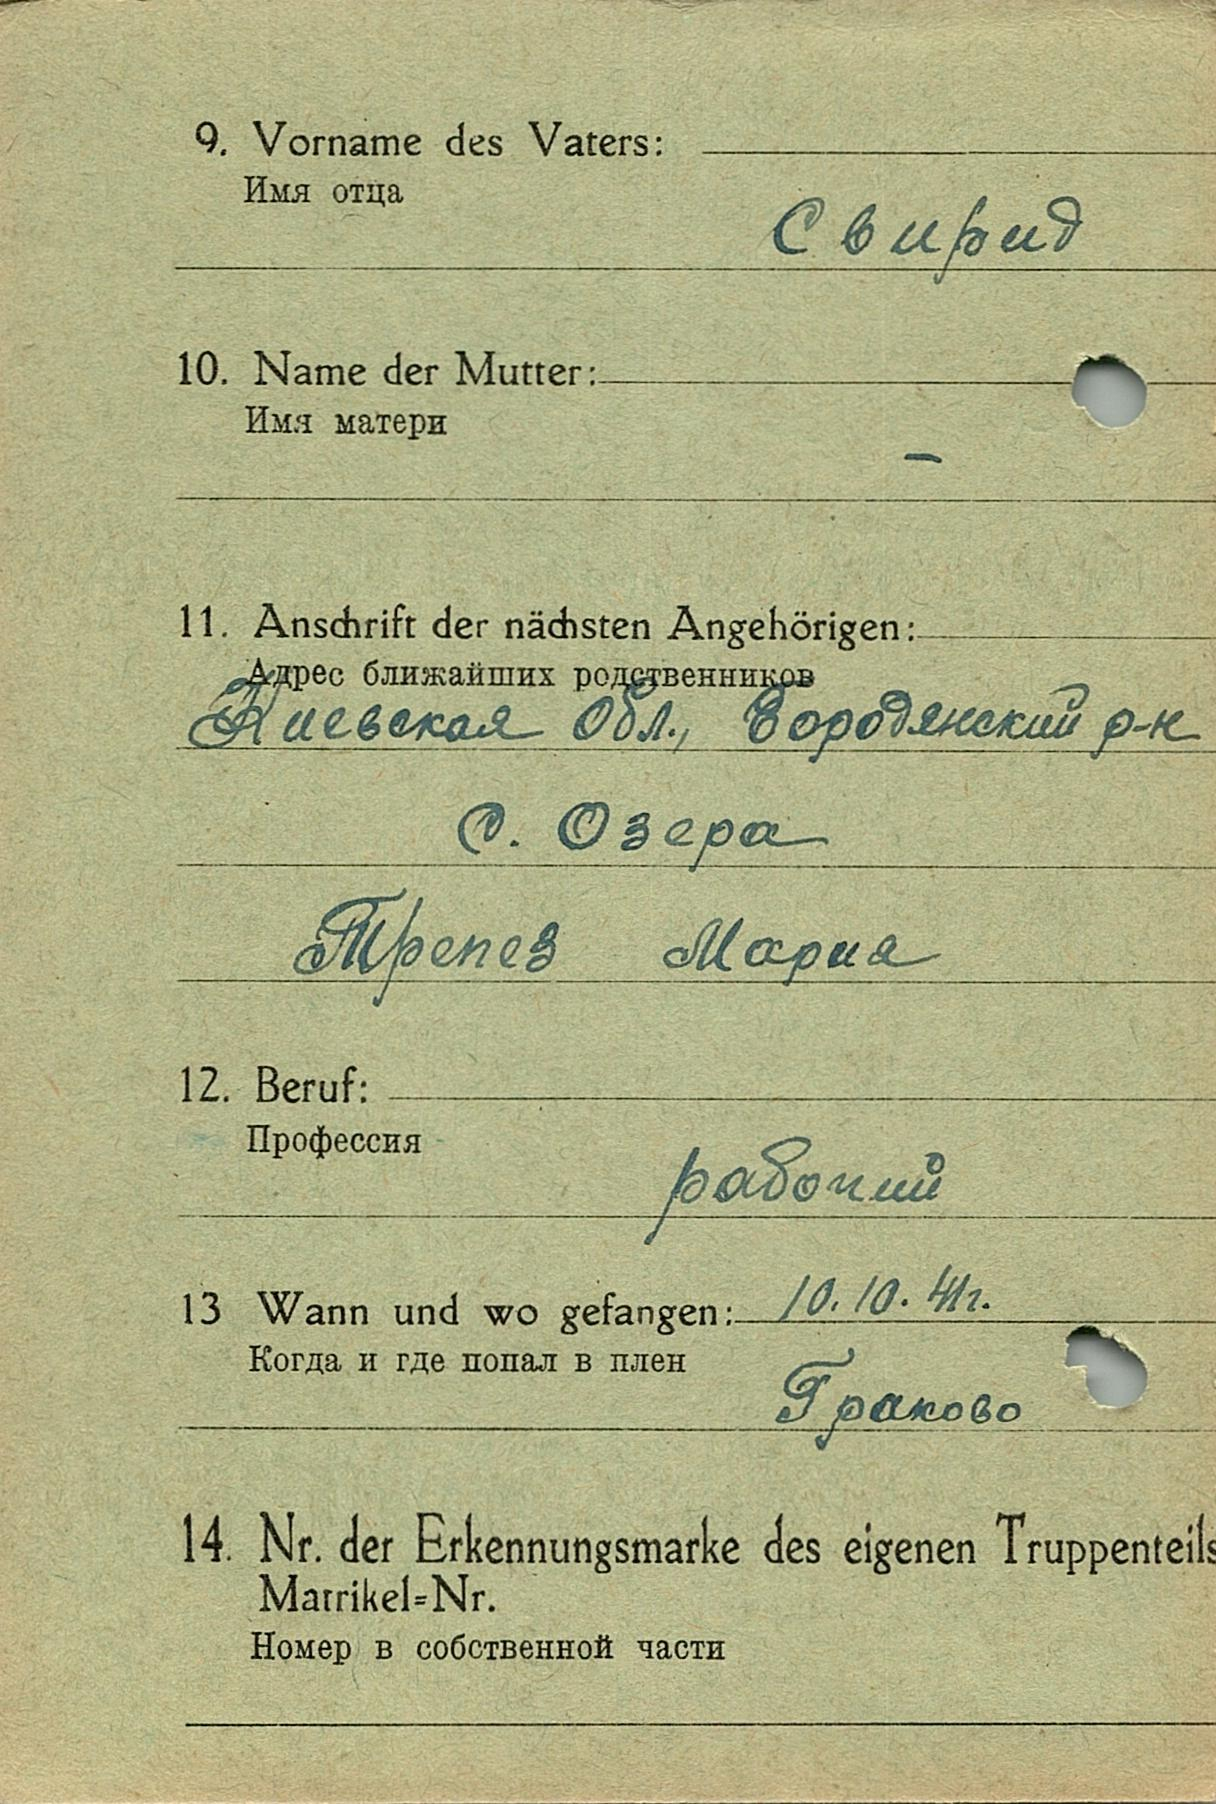 9. Vorname des Vaters:
Имя отца
Свирид
10. Name der Mutter:
Имя матери
–
11. Anschrift der nächsten Angehörigen:
Адрес ближайших родственников
Киевская обл., Бородянский р-н
с. Озера
Трепез Мария
12. Beruf:
Профессия
рабочий
13 Wann und wo gefangen: 10.10.41г.
Когда и где попал в плен
Граково
14. Nr. der Erkennungsmarke des eigenen Truppenteils
Matrikel=Nr.
Номер в собственной части